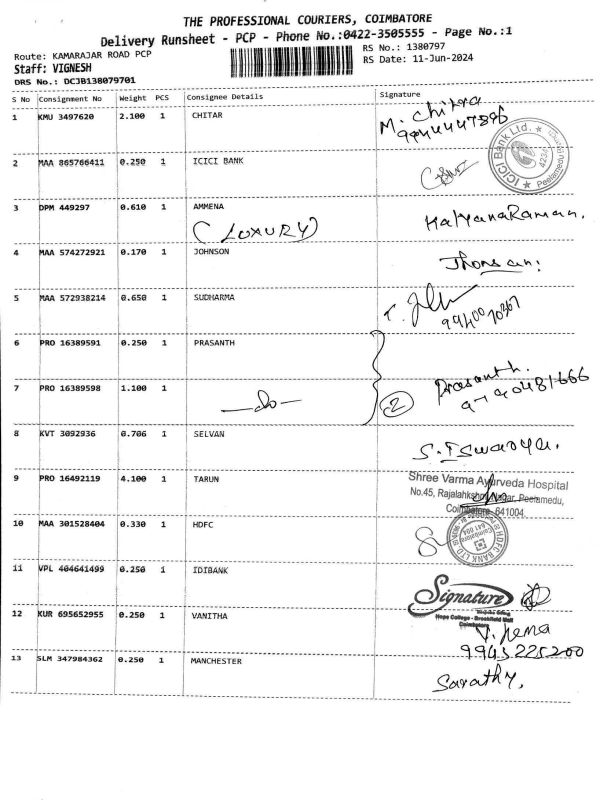 THE PROFESSIONAL COURIERS, COIMBATORE
Delivery Runsheet - PCP - Phone No.:0422-3505555 - Page No.:1
Route: KAMARAJAR ROAD PCP
RS No.: 1380797
Staff: VIGNESH
RS Date: 11-Jun-2024
DRS No.: DCJB138079701
S No Consignment No Weight PCS Consignee Details Signature
1 KMU 3497620 2.100 1 CHITAR M. Chitra
ICICI Bank Ltd. Peelamedu
2 MAA 865766411 0.250 1 ICICI BANK
3 DPM 449297 0.610 1 AMMENA Kalyanaraman.
(LUXURY)
4 MAA 574272921 0.170 1 JOHNSON Jhonsan.
5 MAA 572938214 0.650 1 SUDHARMA
6 PRO 16389591 0.250 1 PRASANTH Prasanth.
7 PRO 16389598 1.100 1 —do— 2
8 KVT 3092936 0.706 1 SELVAN S. Iswarya.
9 PRO 16492119 4.100 1 TARUN Shree Varma Ayurveda Hospital
No.45, Rajalahkshmi Nagar, Peelamedu,
Coimbatore- 641004
10 MAA 301528404 0.330 1 HDFC
HDFC BANK LTD
11 VPL 404641499 0.250 1 IDIBANK Signature
Hope College - Brookfield Mall
Coimbatore
12 KUR 695652955 0.250 1 VANITHA
9943225200
13 SLM 347984362 0.250 1 MANCHESTER Sarathy.